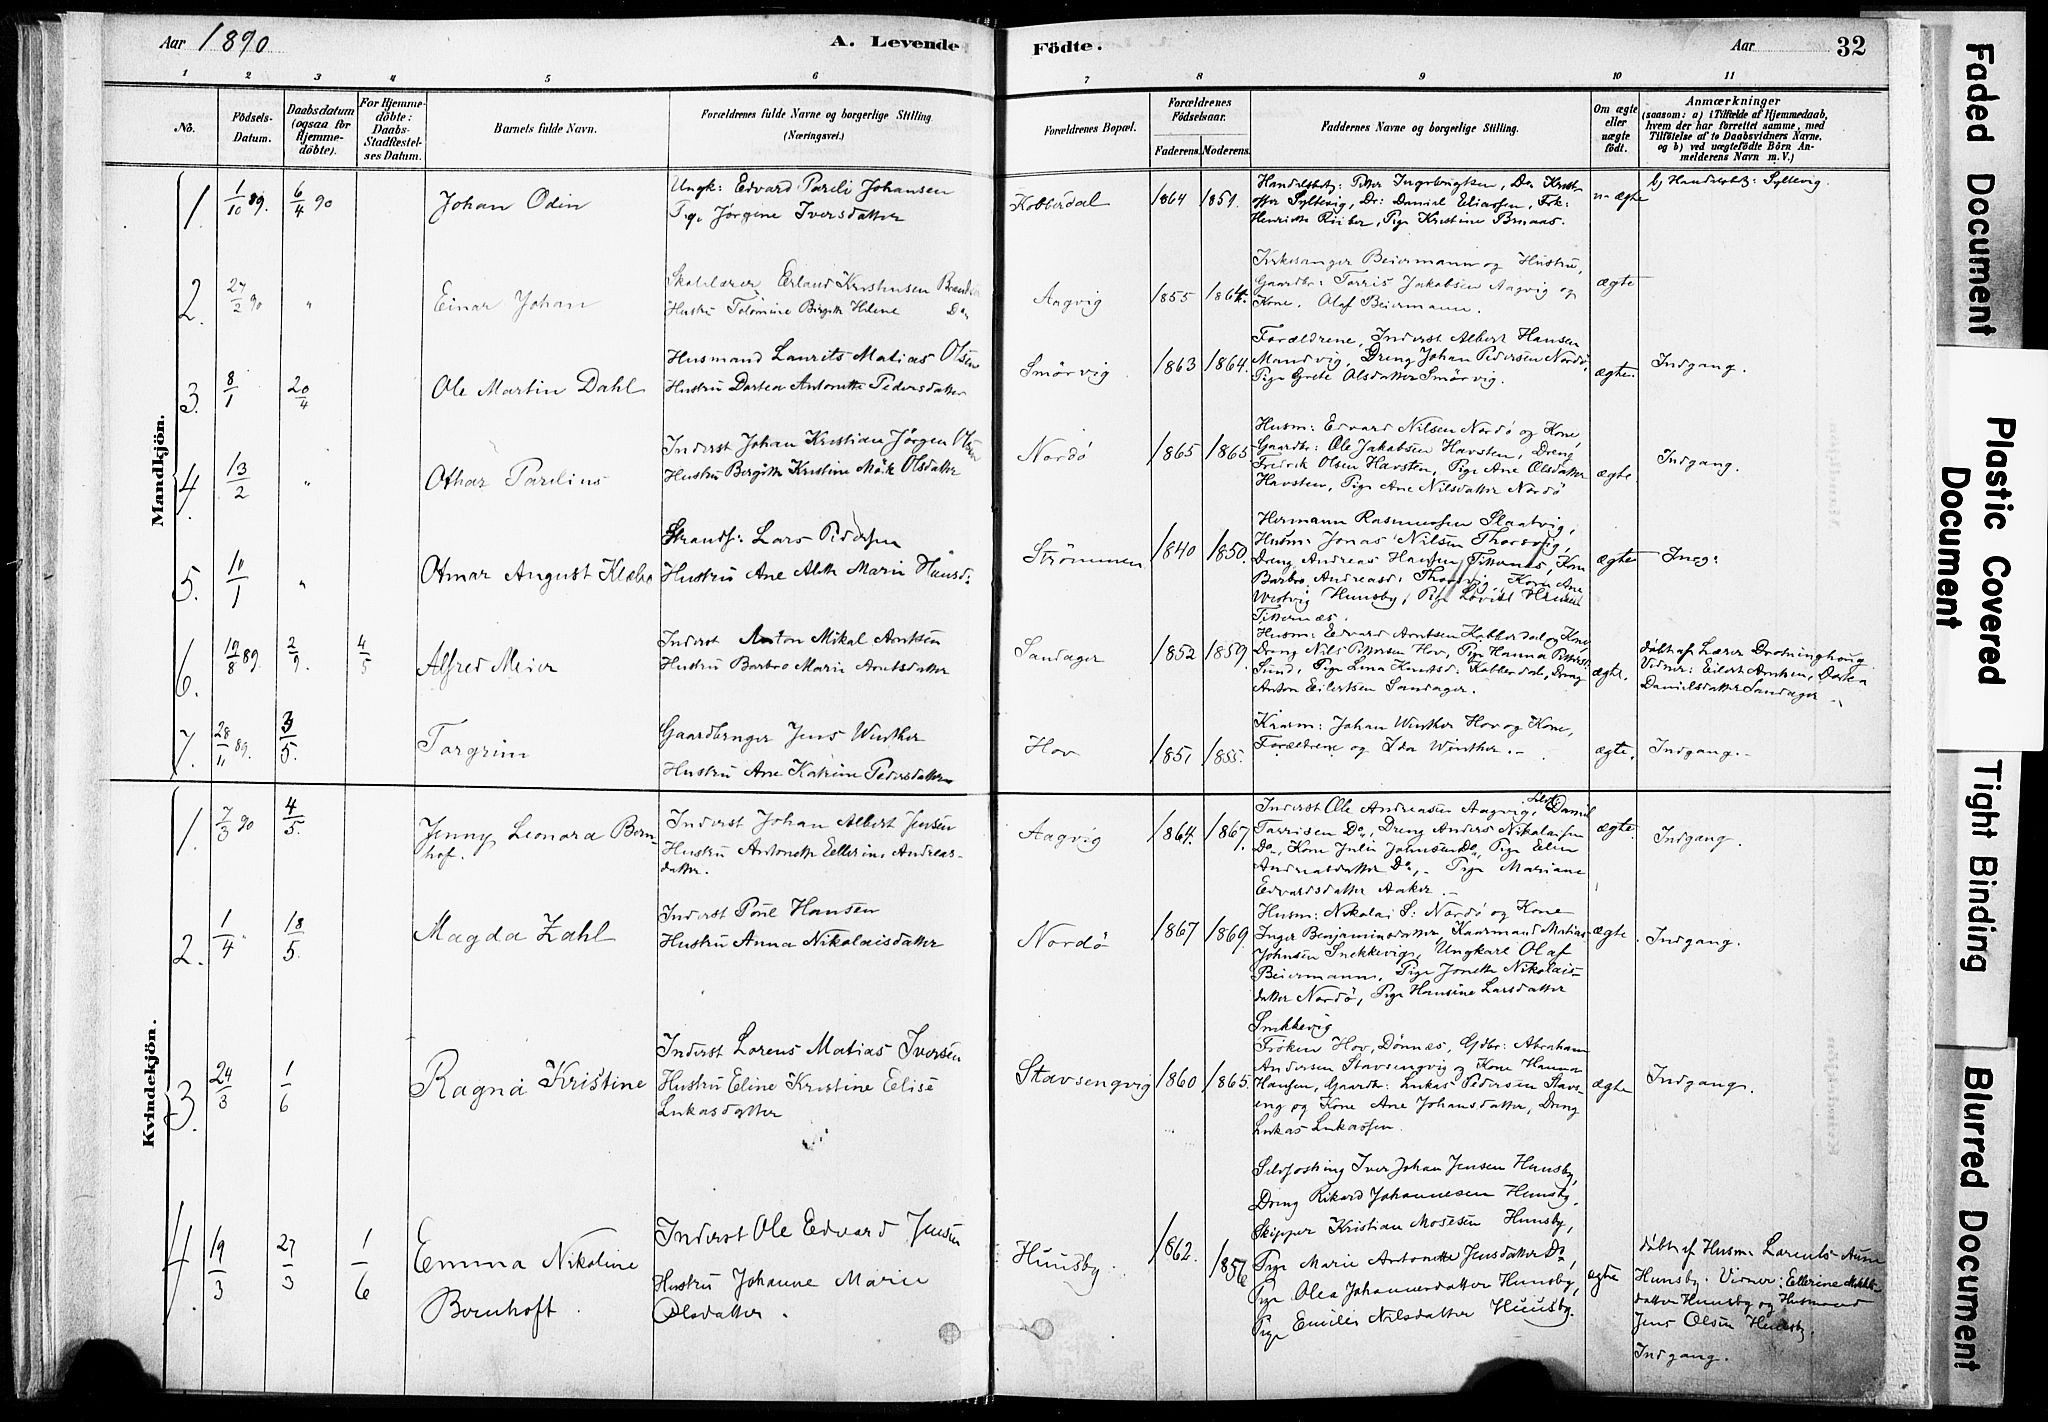 Aar 1890
A. Levende
Födte.
Aar
32
1 2 3 4 5 6 7 8 9 10 11
No.
Födsels-
Datum.
Daabsdatum
(ogsaa for
Hjemme-
döbte).
For Hjemme-
döbte:
Daabs-
Stadfæstel-
ses Datum.
Barnets fulde Navn.
Forældrenes fulde Navne og borgerlige Stilling
(Næringsvei.)
Forældrenes Bopæl.
Forældrenes
Födselsaar.
Faderens.
Moderens.
Faddernes Navne og borgerlige Stilling.
Om ægte
eller
uægte
födt.
Anmærkninger
(saasom: a) i Tilfælde af Hjemmedaab,
hvem der har forrettet samme, med
Tilföielse af to Daabsvidners Navne,
og b) ved uægtefödte Börn An-
melderens Navn m. V.)
Mandkjön.
1. 1/10 89. 6/4 90
Johan Odin
Ungk: Edvard Pareli Johansen
Pige Jørgine Iversdatter
Kobberdal
1864 1851.
Handelsbetj: Peter Ingebrigtsen, Do Krist-
offer Syltevig, Do: Daniel Eliassen, Frk:
Henriette Riiber, Pige Kristine Brnaas.
u-ægte
b) Handelsbetj: Syltevig.
2. 27/2 90 "
Einar Johan
Skolelærer Erland Kristensen
Hustru Tolomine Birgitte Helene Do
Aagvig
1855 1864.
Kirkesanger Beiermann og Hustru,
Gaardbr: Torris Jakobsen Aagvig og
Kone, Olaf Beiermann.
ægte
3. 8/1 20/4
Ole Martin Dahl
Husmand Laurits Matias Olsen
Hustru Dortea Antonette Pedersdatter
Smörvig
1863 1864.
Forældrene, Inderst Albert Hansen
Mandvig, Dreng Johan Pedersen Nordö,
Pige Grete Olsdatter Smörvig.
ægte.
Indgang.
4. 13/2 "
Othar Parelius
Inderst Johan Kristian Jørgen Olsen
Hustru Bergitte Kristine Olsdatter
Nordö
1865 1865
Husm: Edvard Nilsen Nordö og Kone,
Gaardbr: Ole Jakobsen Havsten, Dreng
Fredrik Olsen Havsten, Pige Ane Olsdatter
Havsten, Pige Ane Nilsdatter Nordö
ægte.
Indgang.
5. 10/1 "
Otmar August Klæbo
Strands: Lars Pedersen
Hustru Ane Aleth Marie Hansd:
Strömmen
1840 1850.
Hermann Rasmussen Slaatvig,
Husm: Jonas Nilsen
Dreng Andreas Hansen
Barbro Andreasd: Kone Ane
Hunsby, Pige Lovise Hansen
ægte
Indg:
6. 19/8 89. 2/9. 4/5
Alfred Meier
Inderst Anton Mikal Arntsen
Hustru Barbro Marie Arntsdatter
Sandager
1852 1859.
Husm: Edvard Arntsen Kobberdal og Kone,
Dreng Nils Pettersen Hov, Pige Hanna Petters:
Sund, Pige Lina Knutsd: Kobberdal, Dreng
Anton Eilertsen Sandager.
ægte.
döbt af Lærer Dronninghoug
Vidner: Eilert Arntsen, Dortea
Danielsdatter Sandager
7. 28/11 89. 3/5.
Torgrim
Gaardbruger Jens Winther
Hustru Ane Katrine Pedersdatter
Hov
1851 1855.
Kaarm: Johan Winther Hov og Kone,
Forældrene og Ida Winther.
ægte.
Indgang.
Kvindekjön.
1. 7/3 90 4/5.
Jenny Leonora Bern-
hof.
Inderst Johan Albert Jensen
Hustru Antonette Ellerine Andreas-
datter.
Aagvig
1864. 1867.
Inderst Ole Andreasen Aagvig, Daniel
Torrisen Do, Dreng Anders Nikolaisen
Do, Kone Julie Johnsen Do, Pige Elen
Andreasdatter Do, Pige Mariane
Edvardsdatter Aaker.
ægte
Indgang.
2. 1/4 18/5.
Magda Zahl
Inderst Poul Hansen
Hustru Anna Nikolaisdatter
Nordö
1867 1869.
Husm: Nikolai S: Nordö og Kone
Inger Benjaminsdatter, Kaarmand Matias
Johnsen Snekkevig, Ungkarl Olaf
Beiermann, Pige Jonette Nikolais-
datter Nordö, Pige Hansine Larsdatter
Snekkevig
ægte
Indgang.
3. 24/3 1/6
Ragna Kristine
Inderst Lorens Matias Iversen
Hustru Eline Kristine Elise
Lukasdatter
Stavsengvig
1860 1865.
Fröken Hov, Dönnæs, Gdbr: Abraham
Andersen Stavsengvig og Kone Hanna
Hansen, Gaardbr: Lukas Pedersen Stavs-
eng og Kone Ane Johansdatter, Dreng
Lukas Lukassen.
ægte
Indgang.
4. 19/3 27/3 1/6
Emma Nikoline
Bernhoft.
Inderst Ole Edvard Jensen
Hustru Johanne Marie
Olsdatter.
Huusby.
1862. 1856
Selvfostring Iver Johan Jensen Hunsby,
Dreng Rikard Johannesen Hunsby.
Skipper Kristian Mosesen Hunsby,
Pige Marie Antonette Jensdatter Do,
Pige Olea Johannesdatter Hunsby,
Pige Emilie Nilsdatter Huusby.
ægte
döbt af Husm: Lorents Aune
Hunsby. Vidner: Ellerine
datter Hunsby og Husmand
Jens Olsen Hunsby.
Indgang.
Faded Document
Plastic Covered
Document
Tight Binding
Blurred Document